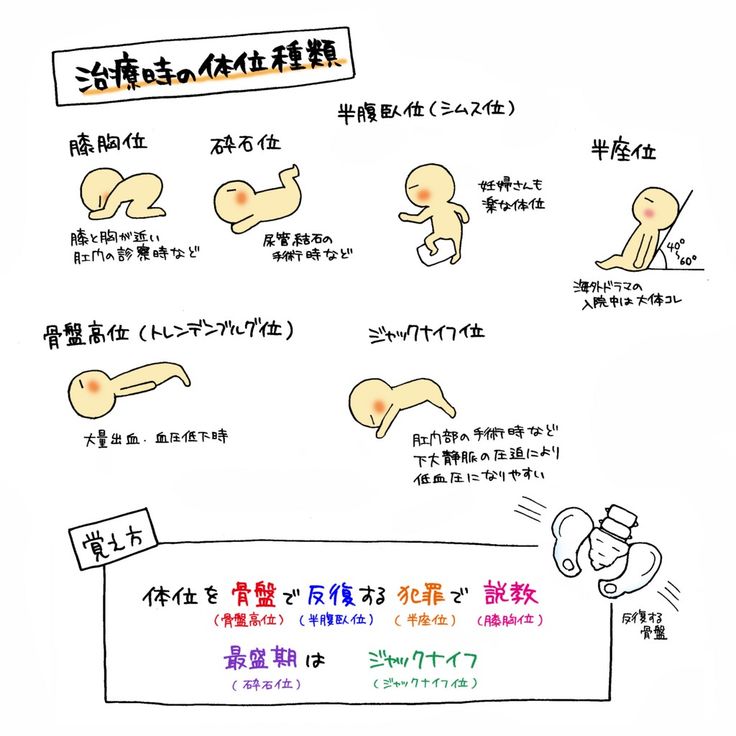 治療時の体位種類
膝胸位
膝と胸が近い
肛門の診察時など
砕石位
尿管結石の
手術時など
半腹臥位(シムス位)
妊婦さんも
楽な体位
半座位
40°
~
60°
海外ドラマの
入院中は大体コレ
骨盤高位(トレンデンブルグ位)
大量出血・血圧低下時
ジャックナイフ位
肛門部の手術時など
下大静脈の圧迫により
低血圧になりやすい
覚え方
体位を骨盤で反復する犯罪で説教
(骨盤高位) (半腹臥位) (半座位) (膝胸位)
最盛期はジャックナイフ
(砕石位) (ジャックナイフ位)
反復する
骨盤